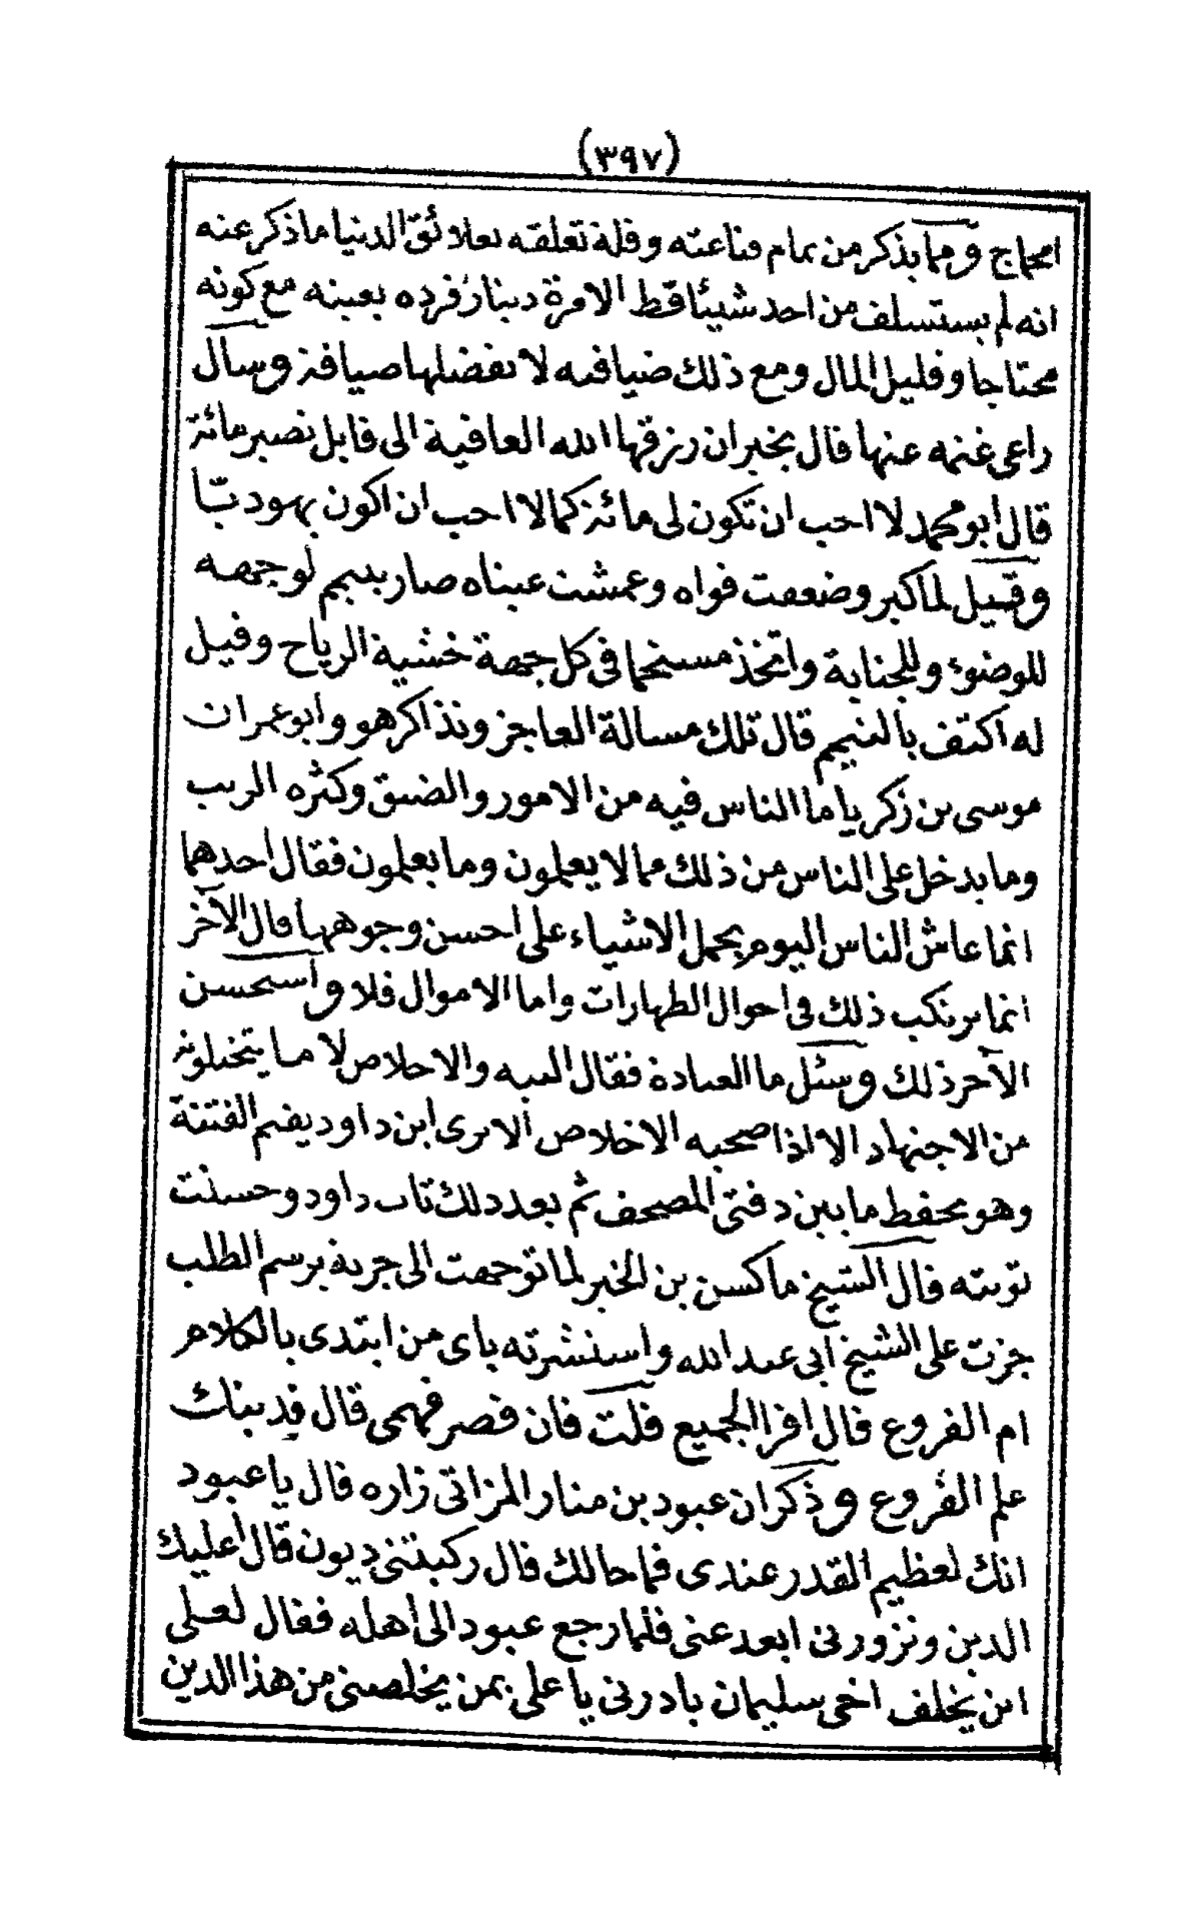 (٣٩٧)
امحماج ومما يذكر من تمام قناعته وقلة تعلقه بعلائق الدنيا ما ذكر عنه
انه لم يستسلف من احد شيئا قط الا مرة دينار فرده بعينه مع كونه
محتاجا وقليل المال ومع ذلك ضيافته لا تفضلها ضيافة وسأل
راعي غنمه عنها قال بخير ان رزقها الله العافية الى قابل تصير مائة
قال أبو محمد لا احب ان تكون لي مائة كما لا احب ان اكون يهوديا
وقيل لما كبر وضعفت قواه وعمشت عيناه صار يديم لوجهه
للوضوء وللجنابة واتخذ مستحما في كل جهة خشية الرياح وقيل
له اكتف بالتيمم قال تلك مسالة العاجز وتذاكر هو وابو عمران
موسى بن زكرياء ما الناس فيه من الامور والضيق وكثرة الريب
وما يدخل على الناس من ذلك مما لا يعلمون وما يعلمون فقال احدهما
انما عاش الناس اليوم بحمل الاشياء على احسن وجوهها قال الآخر
انما يرتكب ذلك في احوال الطهارات واما الاموال فلا واستحسن
الآخر ذلك وسئل ما العبادة فقال النية والاخلاص لا ما يتخيلونه
من الاجتهاد الا اذا صحبه الاخلاص ألا ترى ابن داود يفهم الفتنة
وهو يحفظ ما بين دفتي المصحف ثم بعد ذلك تاب داود وحسنت
توبته قال الشيخ ماكسن بن الخير لما توجهت الى جربة برسم الطلب
جزت على الشيخ أبي عبد الله واستشرته بأي من ابتدى بالكلام
ام الفروع قال اقرأ الجميع قلت فان قصر فهمي قال قد بينك
علم الفروع وذكر ان عبود بن منار المزاتي زاره قال يا عبود
انك لعظيم القدر عندي فما حالك قال ركبتني ديون قال أعليك
الدين وتزورني ابعد عني فلما رجع عبود الى أهله فقال لعلي
ابن يخلف اخي سليمان بادرني يا علي بمن يخلصني من هذا الدين